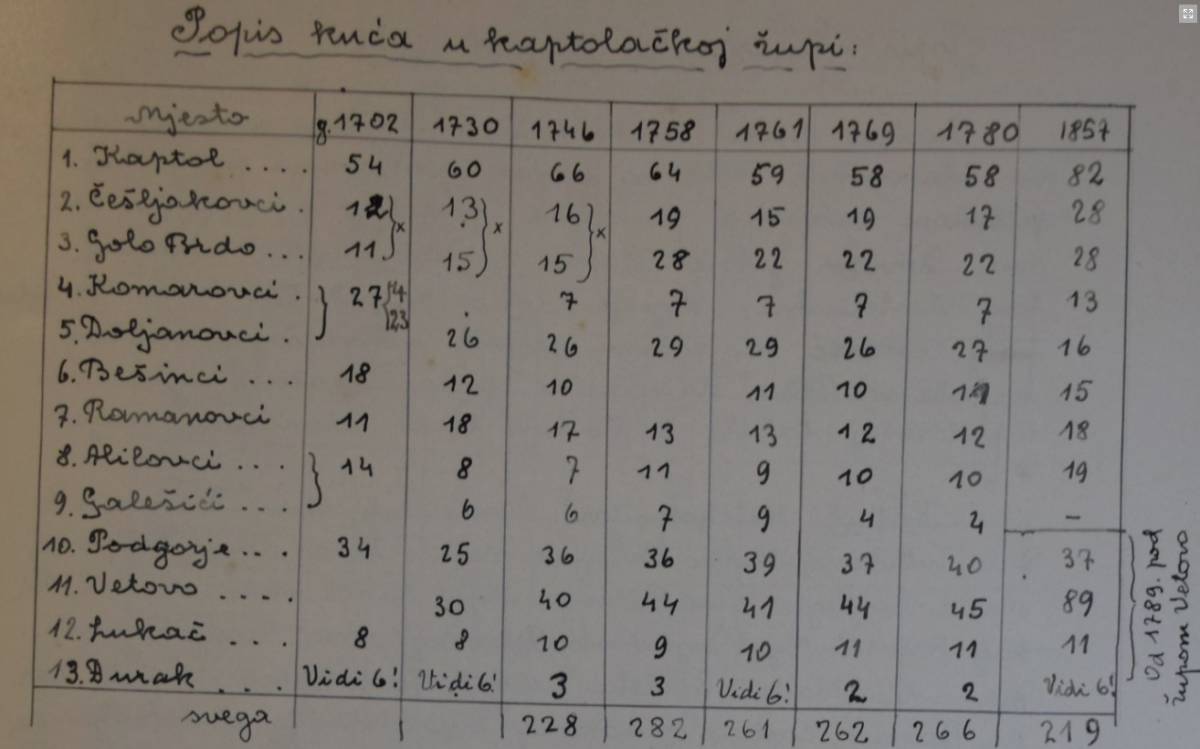 Popis kuća u kaptolačkoj župi:
Mjesto g. 1702 1730 1746 1758 1761 1769 1780 1857
1. Kaptol .... 54 60 66 64 59 58 58 82
2. Češljakovci . 12 13 16 19 15 19 17 28
x x x
3. Golo Brdo ... 11 15 15 28 22 22 22 28
4. Komarovci . 27 4 . 7 7 7 7 7 13
23
5. Doljanovci . 26 26 29 29 26 27 16
6. Bešinci ... 18 12 10 11 10 11 15
7. Ramanovci 11 18 17 13 13 12 12 18
8. Alilovci ... 14 8 7 11 9 10 10 19
9. Galešići ... 6 6 7 9 4 2 –
10. Podgorje ... 34 25 36 36 39 37 40 37
11. Vetovo .... 30 40 44 41 44 45 89
12. Lukač ... 8 8 10 9 10 11 11 11
13. Durak ... Vidi 6! Vidi 6! 3 3 Vidi 6! 2 2 Vidi 6!
svega 228 282 261 262 266 219
Od 1789. pod
župom Vetovo